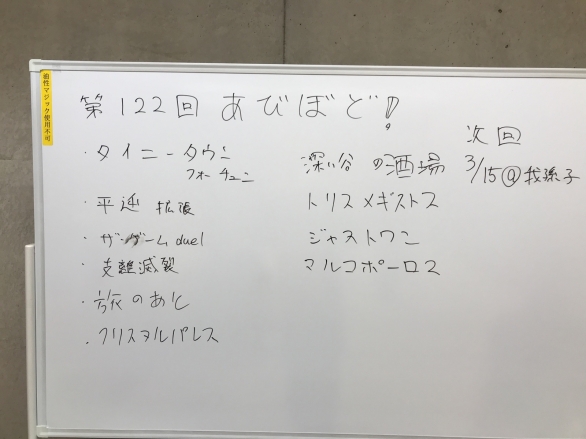 油性マジック使用不可
第122回 あびぼど!
・タイニータウン
フォーチュン
・平逆 拡張
・ザ・ゲームduel
・支離滅裂
・旅のあと
・クリスタルパレス
深い谷の酒場
トリスメギストス
ジャストワン
マルコポーロ2
次回
3/15@我孫子